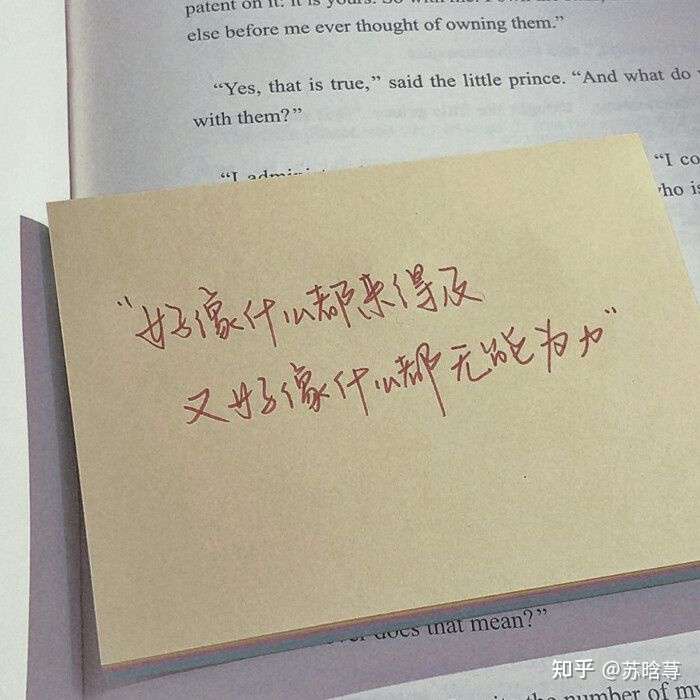 patent on it: it is yours. So with me: I own the
else before me ever thought of owning them.”
“Yes, that is true,” said the little prince. “And what do
with them?”
“I “I co
who is
“好像什么都来得及
又好像什么都无能为力”
does that mean?”
the number of my
知乎 @苏晗荨